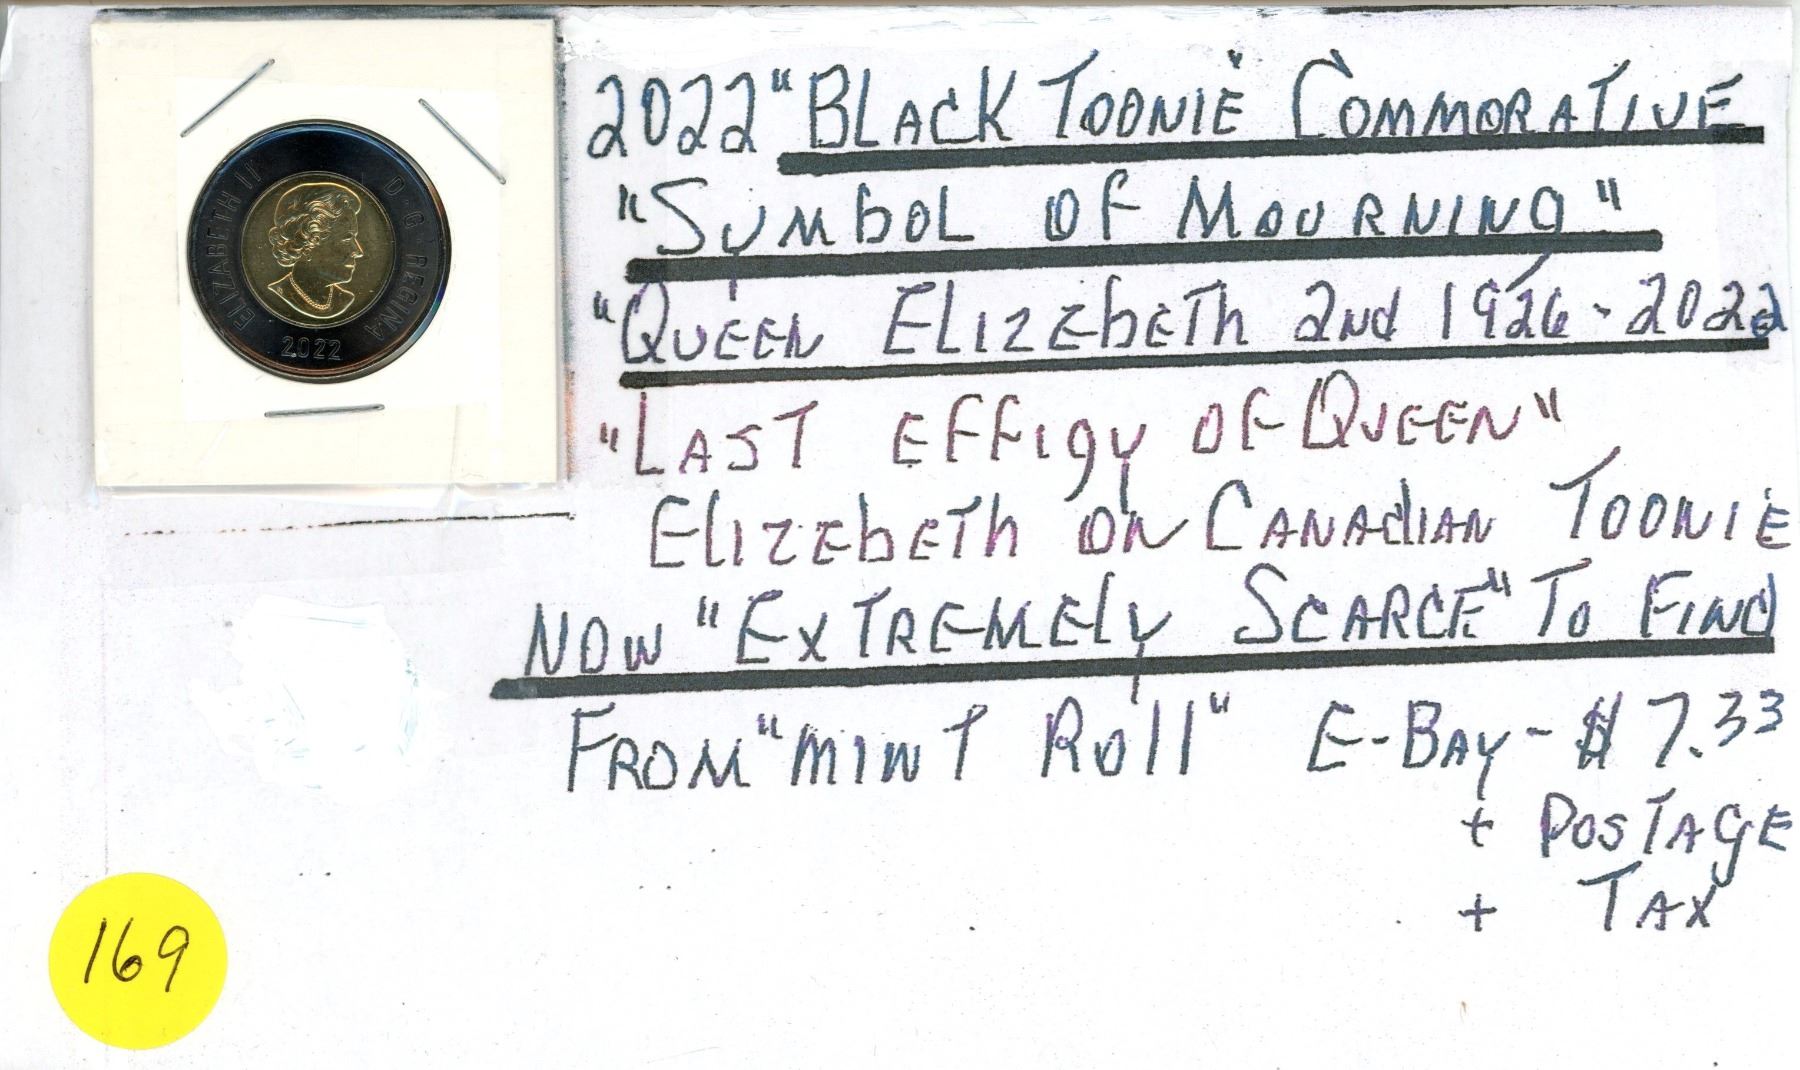 ELIZABETH II D·G·REGINA
2022
2022 "BLACK TOONIE" COMMORATIVE
"SYMBOL OF MOURNING"
"QUEEN ELIZEBETH 2ND 1926-2022
"LAST EFFIGY OF QUEEN"
ELIZEBETH ON CANADIAN TOONIE
NOW "EXTREMELY SCARCE" TO FIND
FROM "MINT ROLL" E-BAY-$7.33
+ POSTAGE
+ TAX
169